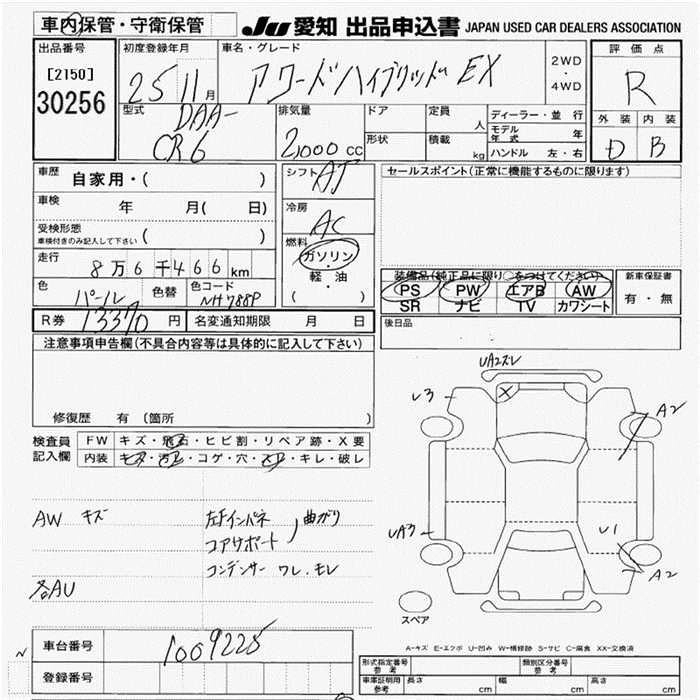 車内保管・守衛保管
JU 愛知 出品申込書 JAPAN USED CAR DEALERS ASSOCIATION
出品番号
[2150]
30256
初度登録年月
25 11月
車名・グレード
アコードハイブリッド EX
2WD
・
4WD
評価点
R
外装 内装
D B
型式
DAA-
CR6
排気量
2,000 cc
ドア
形状
定員
人
積載
kg
ディーラー・並行
モデル年式 年
ハンドル 左・右
車歴
自家用・( )
車検
年 月( 日)
受検形態
車検付きのみ記入して下さい ( )
走行
8万6千466km
色
パール
色替
色コード
NH788P
シフト
AT
冷房
AC
燃料
ガソリン・
軽・油
( )
セールスポイント(正常に機能するものに限ります)
装備品(純正品に限り○をつけてください)
PS PW エアB AW
SR ナビ TV カワシート
新車保証書
有・無
後日品
R券 13370円
名変通知期限 月 日
注意事項申告欄(不具合内容等は具体的に記入して下さい)
修復歴 有(箇所 )
検査員
記入欄
FW キズ・飛石・ヒビ割・リペア跡・X要
内装 キズ・汚れ・コゲ・穴・スレ・キレ・破レ
AW キズ
左Fインパネ
コアサポート
曲がり
コンデンサー ワレ.モレ
各AU
UA2ズレ
U3
X
A2
UA3
U1
A2
スペア
A-キズ E-エクボ U-凹み W-補修跡 S-サビ C-腐食 XX-交換済
車台番号
1009225
登録番号
N
形式指定番号
参考
類別区分番号
参考
車庫証明用
参考
長さ cm
幅 cm
高さ cm